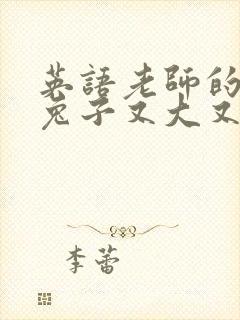 英語老師的
兔子又大又
李蕾